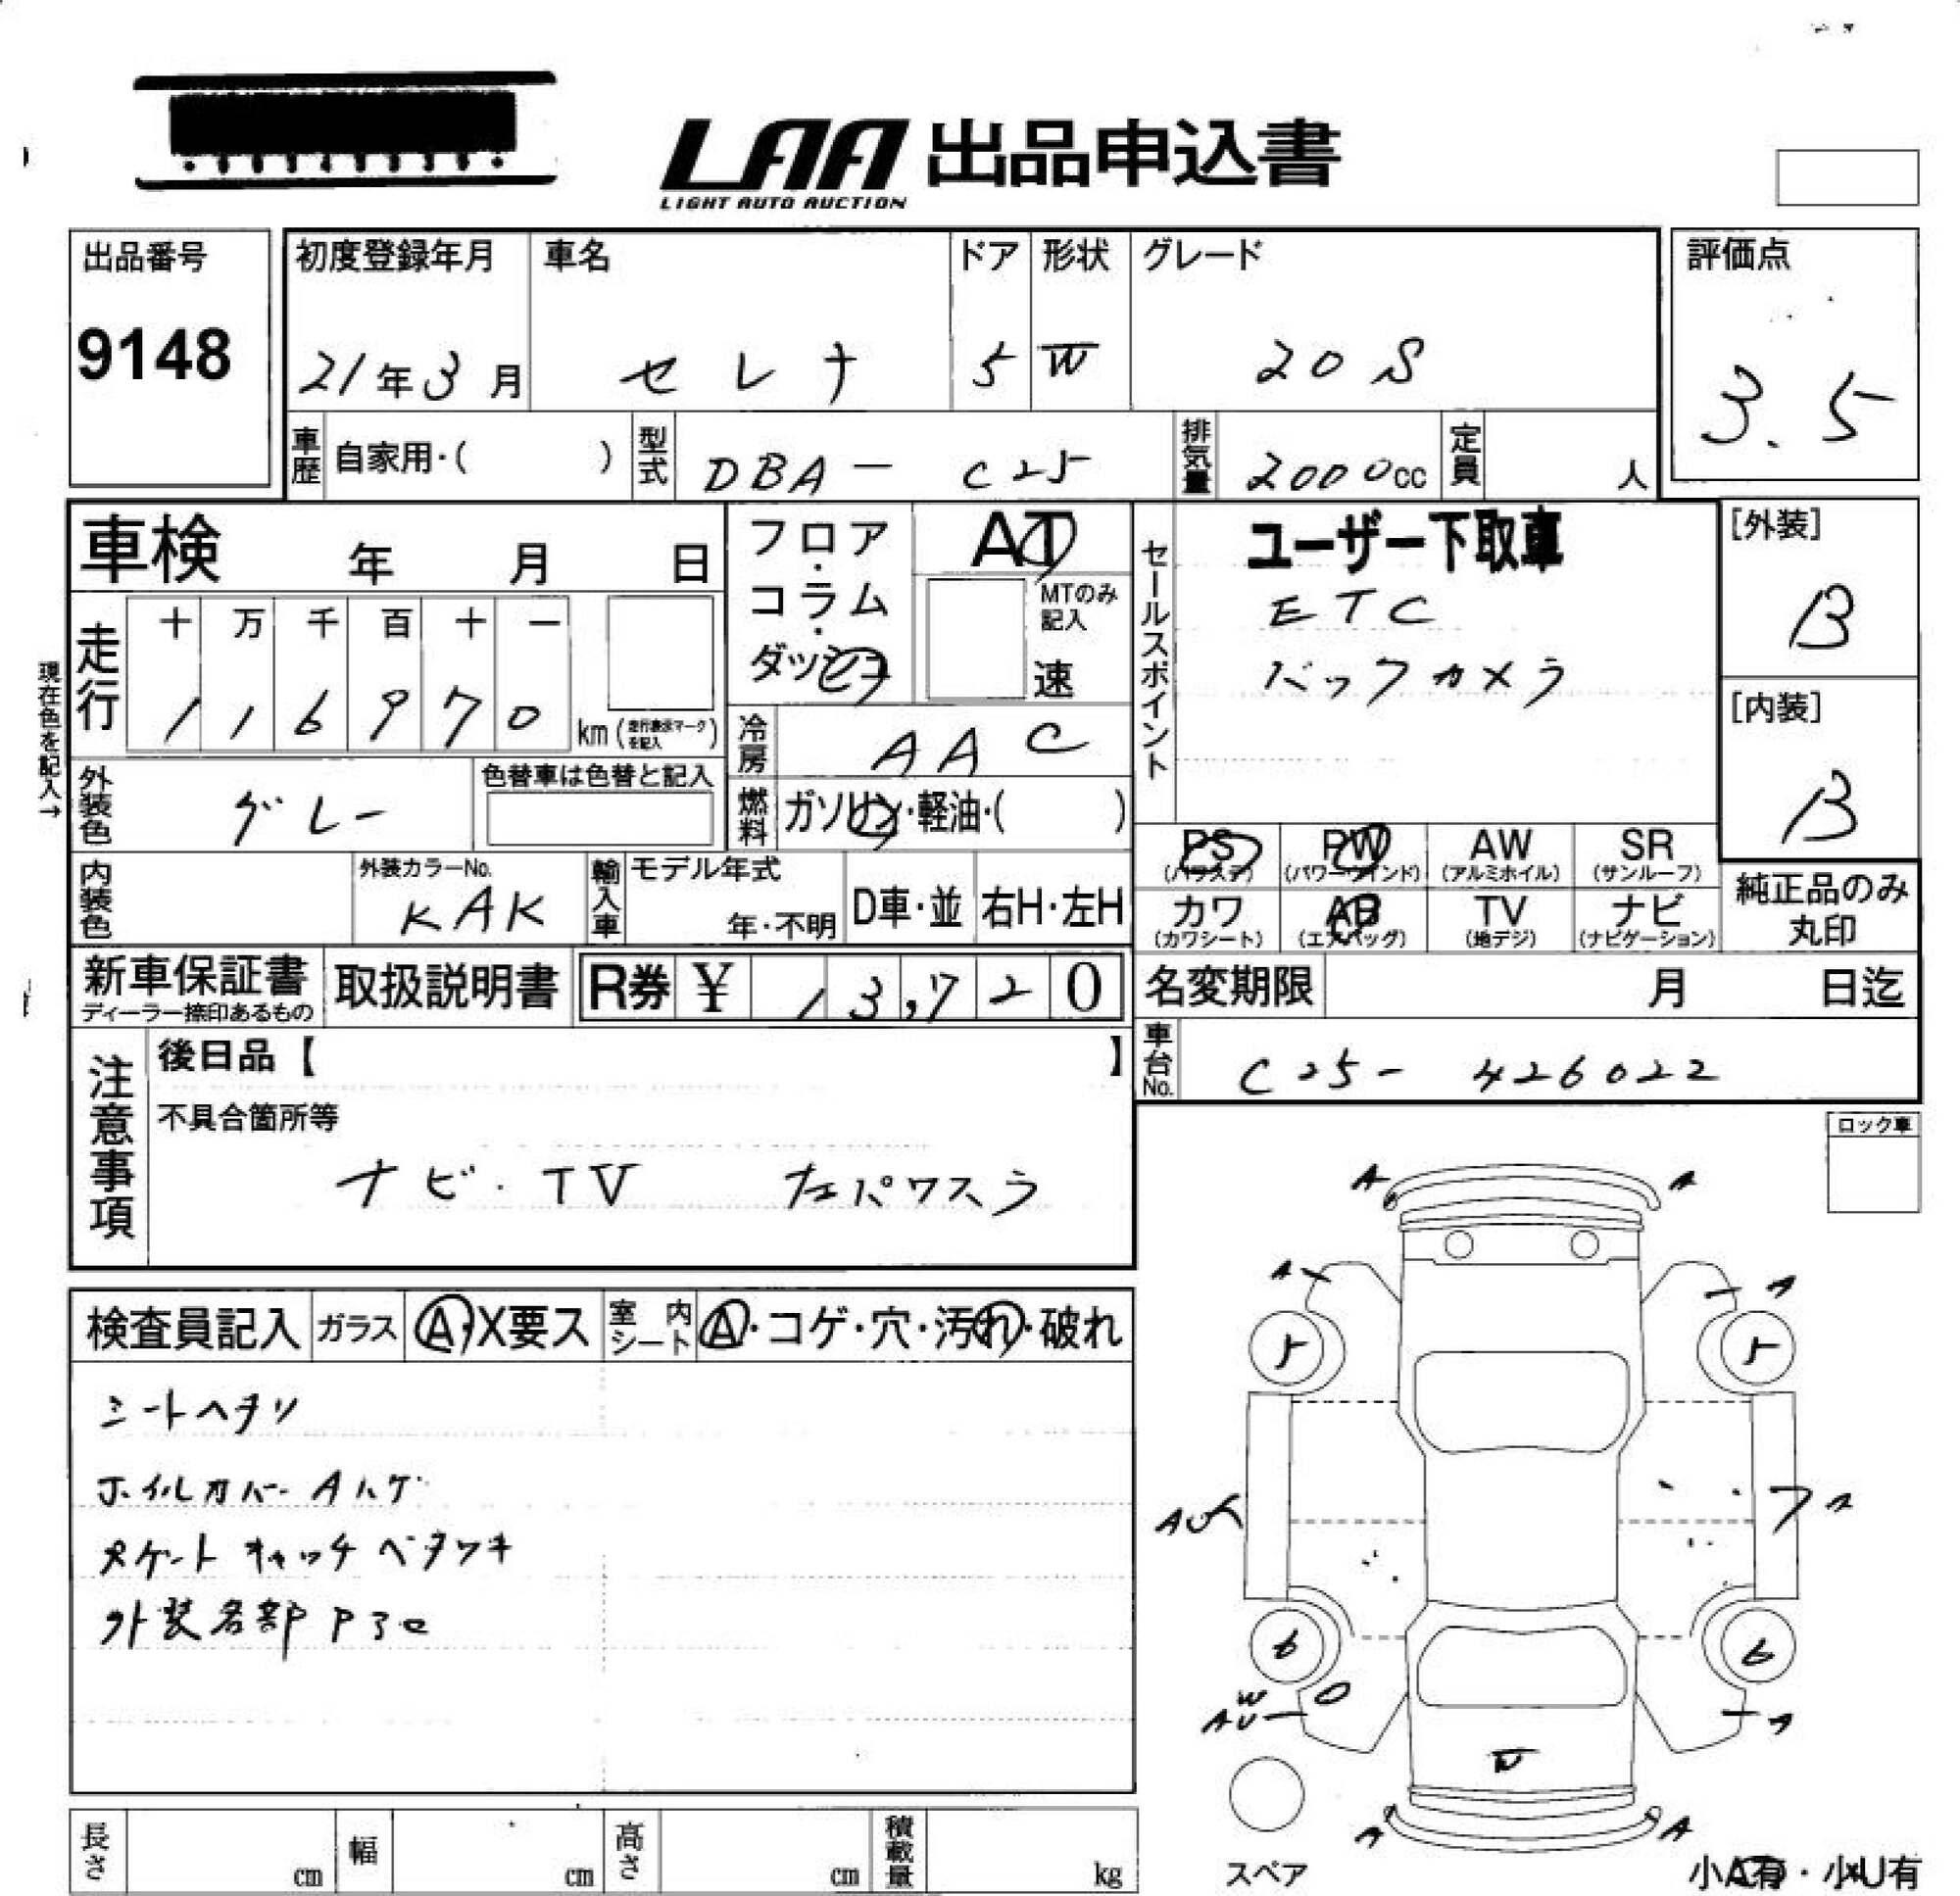 LAA 出品申込書
LIGHT AUTO AUCTION
出品番号
9148
初度登録年月 車名 ドア 形状 グレード
21年3月 セレナ 5 W 20S
評価点
3.5
車歴 自家用・( ) 型式 DBA-C25 排気量 2000cc 定員 人
車検 年 月 日
フロア・コラム・ダッシュ
AT
MTのみ記入
速
セールスポイント
ユーザー下取車
ETC
バックカメラ
[外装]
B
[内装]
B
現在色を記入→
走行 十 万 千 百 十 一
1 1 6 9 7 0 km (走行表示マークを記入)
冷房 AAC
外装色 グレー 色替車は色替と記入
燃料 ガソリン・軽油・( )
内装色 外装カラーNo. KAK
輸入車 モデル年式 年・不明 D車・並 右H・左H
PS PW AW SR
(パワステ) (パワーウインド) (アルミホイル) (サンルーフ)
カワ AB TV ナビ
(カワシート) (エアバッグ) (地デジ) (ナビゲーション)
純正品のみ
丸印
新車保証書
ディーラー捺印あるもの
取扱説明書 R券 ¥ 13,720
名変期限 月 日迄
車台No. C25-426022
注意事項
後日品【 】
不具合箇所等
ナビ・TV 左パワスラ
ロック車
検査員記入 ガラス A・X要ス 室内シート A・コゲ・穴・汚れ・破れ
シートヘタリ
ホイルカバーAハゲ
外装各部
A A
A A
5 5
AU A
6 6
W
AU A
W
A A
スペア
小A有・小U有
長さ cm 幅 cm 高さ cm 積載量 kg